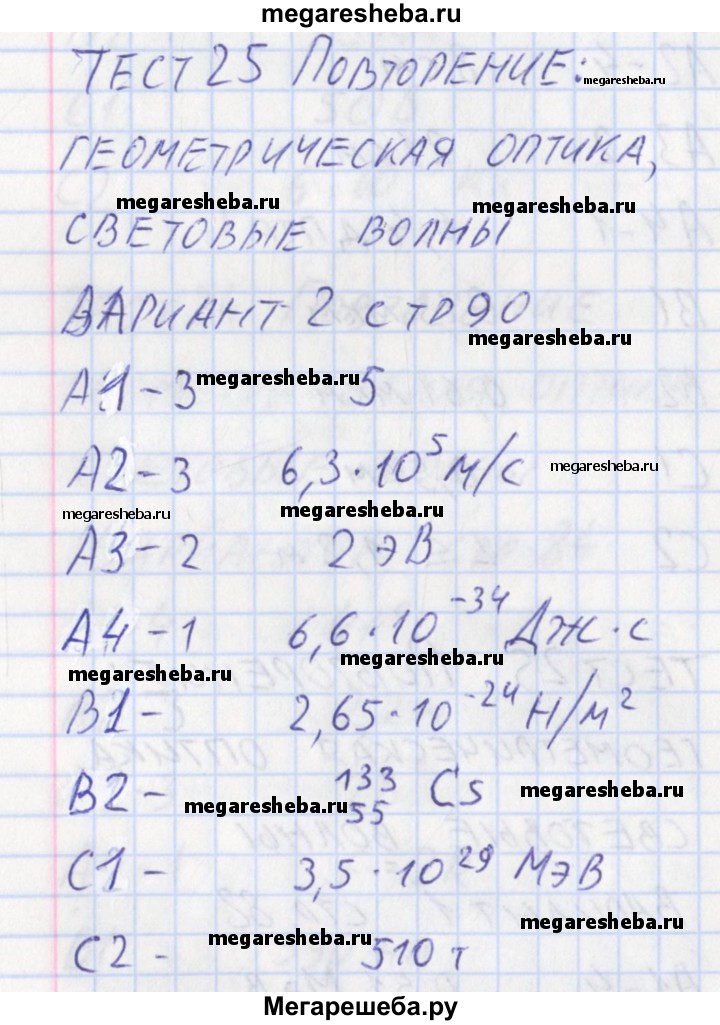 megaresheba.ru
ТЕСТ 25 ПОВТОРЕНИЕ: megaresheba.ru
ГЕОМЕТРИЧЕСКАЯ ОПТИКА,
megaresheba.ru megaresheba.ru
СВЕТОВЫЕ ВОЛНЫ
ВАРИАНТ 2 СТР 90
megaresheba.ru
А1 - 3 megaresheba.ru 5
А2 - 3 6,3·10⁵ м/с megaresheba.ru
megaresheba.ru megaresheba.ru
А3 - 2 2 эВ
А4 - 1 6,6·10⁻³⁴ Дж·с
megaresheba.ru megaresheba.ru
В1 - 2,65·10⁻²⁴ Н/м²
В2 - ¹³³₅₅ Cs megaresheba.ru
megaresheba.ru
С1 - 3,5·10²⁹ МэВ
megaresheba.ru
С2 - megaresheba.ru 510 т
Мегарешеба.ру